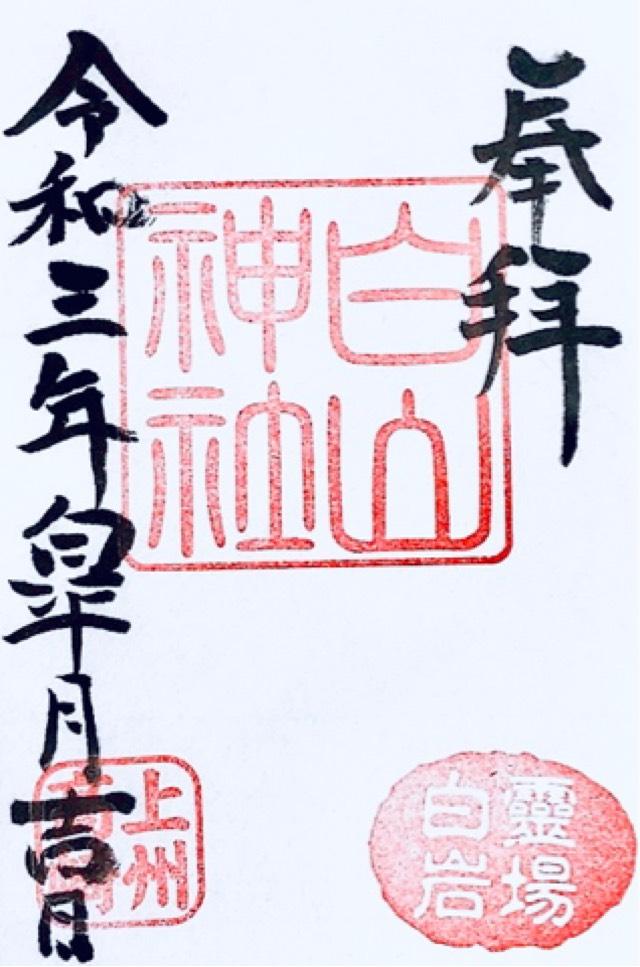 奉拝
白山
神社
靈場
白岩
令和三年皐月吉日
上州